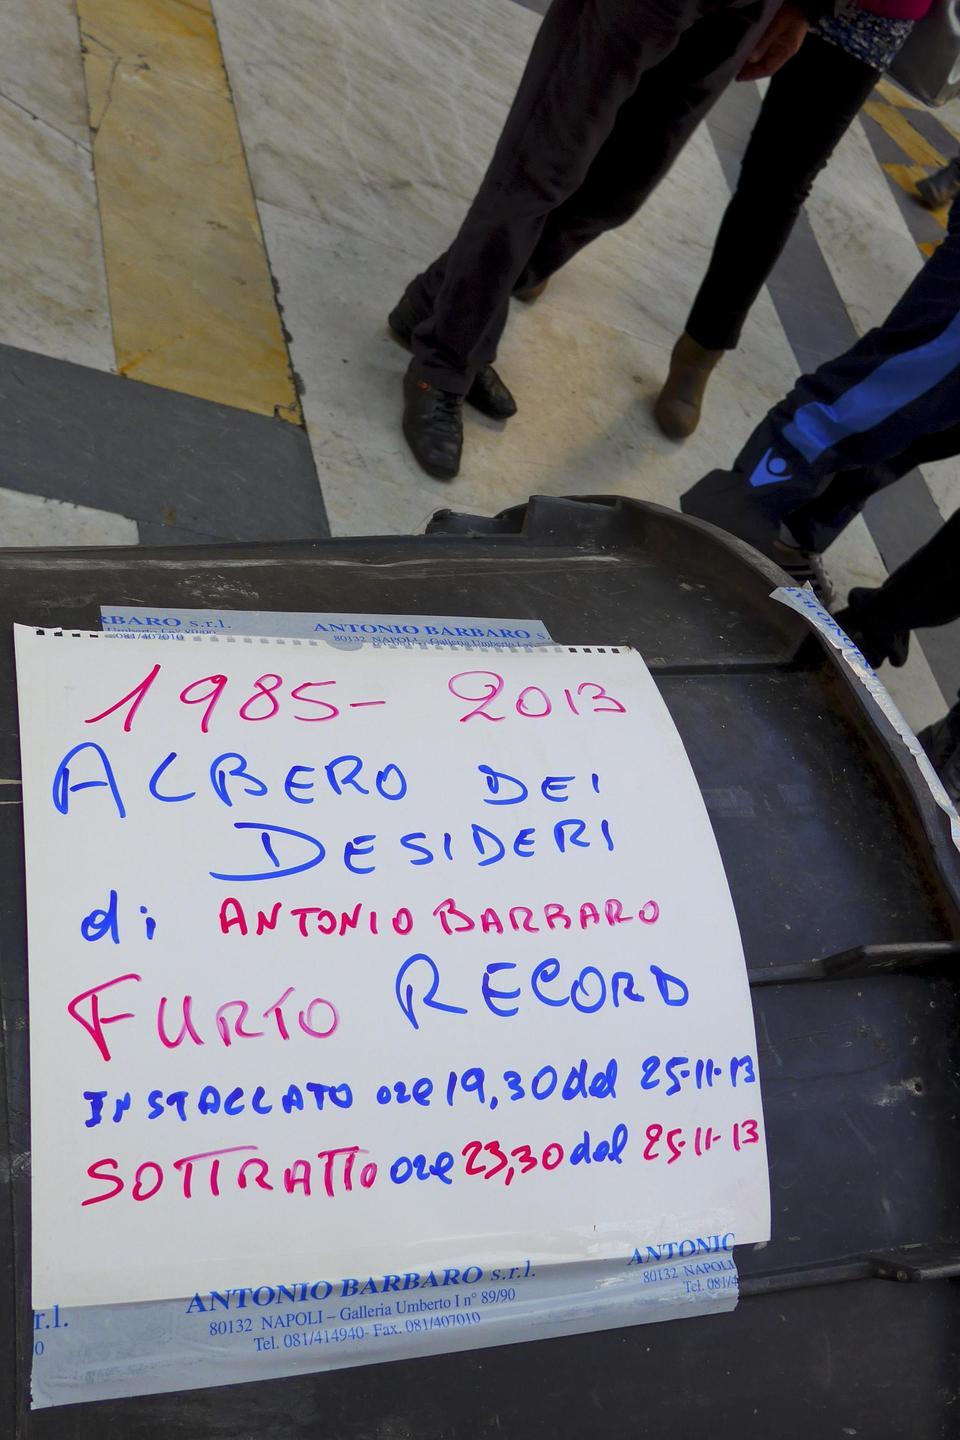 RBARO s.r.l.
Umberto I n° 89/90
081/407010
ANTONIO BARBARO s.
80132 NAPOLI – Galleria Umberto I
1985- 2013
ALBERO DEI
DESIDERI
di ANTONIO BARBARO
FURTO RECORD
INSTALLATO ore 19,30 del 25-11-13
SOTTRATTO ore 23,30 del 25-11-13
r.l.
0
ANTONIO BARBARO s.r.l.
80132 NAPOLI – Galleria Umberto I n° 89/90
Tel. 081/414940- Fax. 081/407010
ANTONIO
80132 NAPOLI
Tel. 081/4